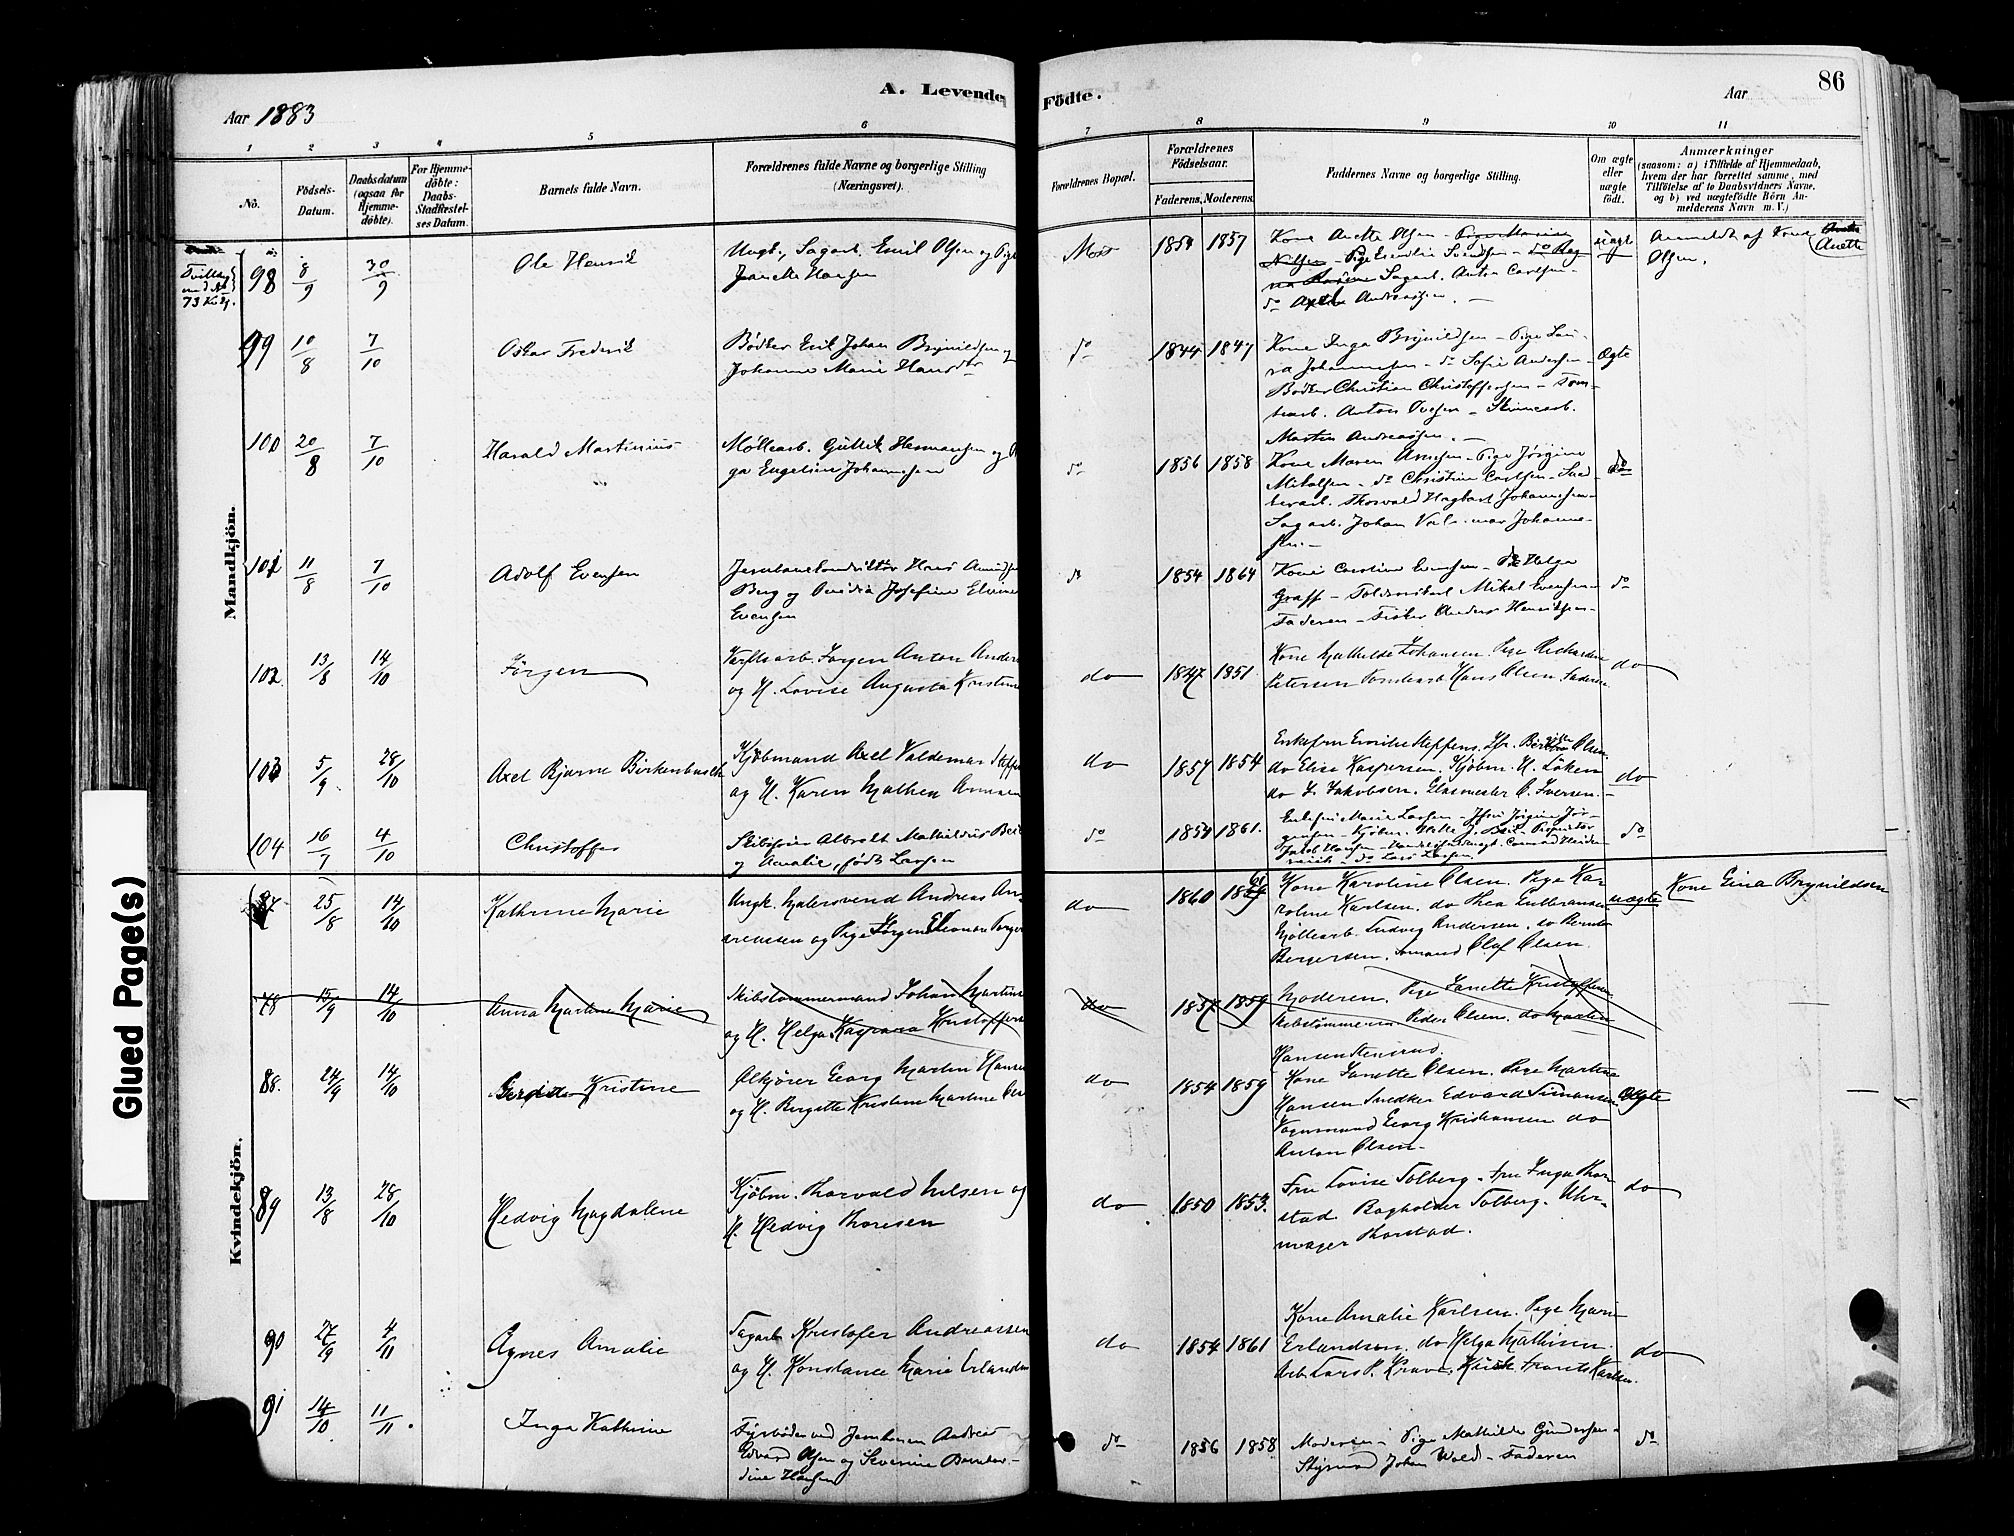 86
A. Levende Födte.
Aar 1883
Aar
1 2 3 4 5 6 7 8 9 10 11
No.
Födsels-Datum.
Daabsdatum (ogsaa for Hjemme-döbte).
For Hjemme-döbte: Daabs-Stadfæstel-ses Datum.
Barnets fulde Navn.
Forældrenes fulde Navne og borgerlige Stilling (Næringsvei).
Forældrenes Bopæl.
Forældrenes Födselsaar.
Faderens. Moderens.
Faddernes Navne og borgerlige Stilling.
Om ægte eller uægte födt.
Anmærkninger
(saasom: a) i Tilfælde af Hjemmedaab,
hvem der har forrettet samme, med
Tilföielse af to Daabsvidners Navne,
og b) ved uægtefödte Börn An-
melderens Navn m. V.)
Mandkjön.
Tvilling
med No
73 Kvkj.
98 8/9 30/9 Ole Henrik
Ungk. Sagarb. Emil Olsen og Pige
Janette Hansen
Moss 1854 1857
Kone Anette Olsen - Pige Maria
Nilsen - Pige Emilie Svendsen - do
Sagarb. Anton Carlsen -
do Axel Andreassen. -
uægte
Anmeldt af Kone Anette
Olsen.
99 10/8 7/10 Oskar Frederik
Bödker Emil Johan Brynildsen og
Johanne Marie Hansdtr
do 1844 1847
Kone Inga Brynildsen - Pige Lau-
ra Johannesen - do Sofie Andersen -
Bödker Christian Christoffersen - Tom-
tearb. Anton Ovesen -
Martin Andreassen. -
Ægte
100 20/8 7/10 Harald Martinius
Möllearb. Guttik Hermansen og
Engeline Johannesen
do 1856 1858
Kone Maren Arnesen - Pige Jörgine
Mikalsen - do Christine Carlsen - Sned-
kerarb. Thorvald Hagbart Johannesen -
Sagarb. Johan Valdemar Johanne-
sen. -
do
101 11/8 7/10 Adolf Evensen
Jernbanekonduktör Hans Amundsen
Berg og Josefine Elvine
Evensen
do 1854 1864
Kone Caroline Evensen - Helga
Graff - Mikal Evensen -
Faderen - Fisker Anders Henriksen -
do
102 13/8 14/10 Jörgen
Verftsarb. Jörgen Anton Anders
og H. Lovise Augusta Kristine
do 1847 1851
Kone Mathilde Johansen. Pige Rikharda
Petersen Tomtearb. Hans Olsen. Faderen.
do
103 5/9 28/10 Axel Bjarne Birkenbusch
Kjöbmand Axel Valdemar Steffens
og H. Karen Mathea
do 1857 1854
Enkefru Emilie Steffens. Jfr. Birgitte Olsen.
do Elise Kaspersen. Kjöbm. H. Löken
do J. Jakobsen. Glasmester C. Iversen. -
do
104 16/7 4/10 Christoffer
Albrekt Mathildius
og Amalie, födt Larsen
do 1854 1861.
Enkefru Marie Larsen - Jfru Jörgine Jör-
gensen - Kjöbm.
Jakob Hansen -
do Lars Larsen
do
Kvindekjön.
87 25/8 14/10 Kathrine Marie
Ungk. Malersvend Andreas An-
dreasen og Pige Jörgen Eleonora Berger
do 1860 1861
Kone Karoline Olsen. Pige Ka-
roline Karlsen. do Thea Gulbransen
Möllearb. Ludvig Andersen. do Bernt
Bergersen. Sömand Olaf Olsen.
uægte
Kone Eina Brynildsen
78 15/9 14/10 Anna Martine Marie
Skibstömmermand Johan Martins
og H. Helga Kaspara Kristoffers
do 1857 1859
Moderen. Pige Janette Kristoffers
Skibstömmerm. Peder Olsen. do Martin
Hansen Stensrud.
88. 24/9 14/10 Kristine
Ölkjörer Georg Martin Hansen
og H. Birgitte Kristine Martine
do 1854 1859
Kone Janette Olsen. Pige Martine
Hansen Snedker Edvard Simonsen
Vognmand Georg Kristiansen do
Anton Olsen -
Ægte
89 13/8 28/10 Hedvig Magdalene
Kjöbm. Thorvald Nilsen og
H. Hedvig Thoresen
do 1850 1853.
Fru Lovise Solberg. Fru Inga Thor-
stad. Bogholder Solberg. Uhr-
mager Thorstad.
do
90 27/9 4/11 Agnes Amalie
Sagarb Kristofer Andreassen
og H. Konstance Marie Erlandsen
do 1854 1861
Kone Amalie Karlsen. Pige Marie
Erlandsen. do Helga Mathisen.
Arb. Lars P. Krave. Frants Karlsen.
do
91 14/10 11/11 Inga Kathrine
Fyrböder ved Jernbanen Andreas
Edvard Olsen og Severine Bernhar-
dine Hansen
do 1856 1858
Moderen - Pige Mathilde Gundersen -
Styrmand Johan Wold - Faderen
do
Glued Page(s)